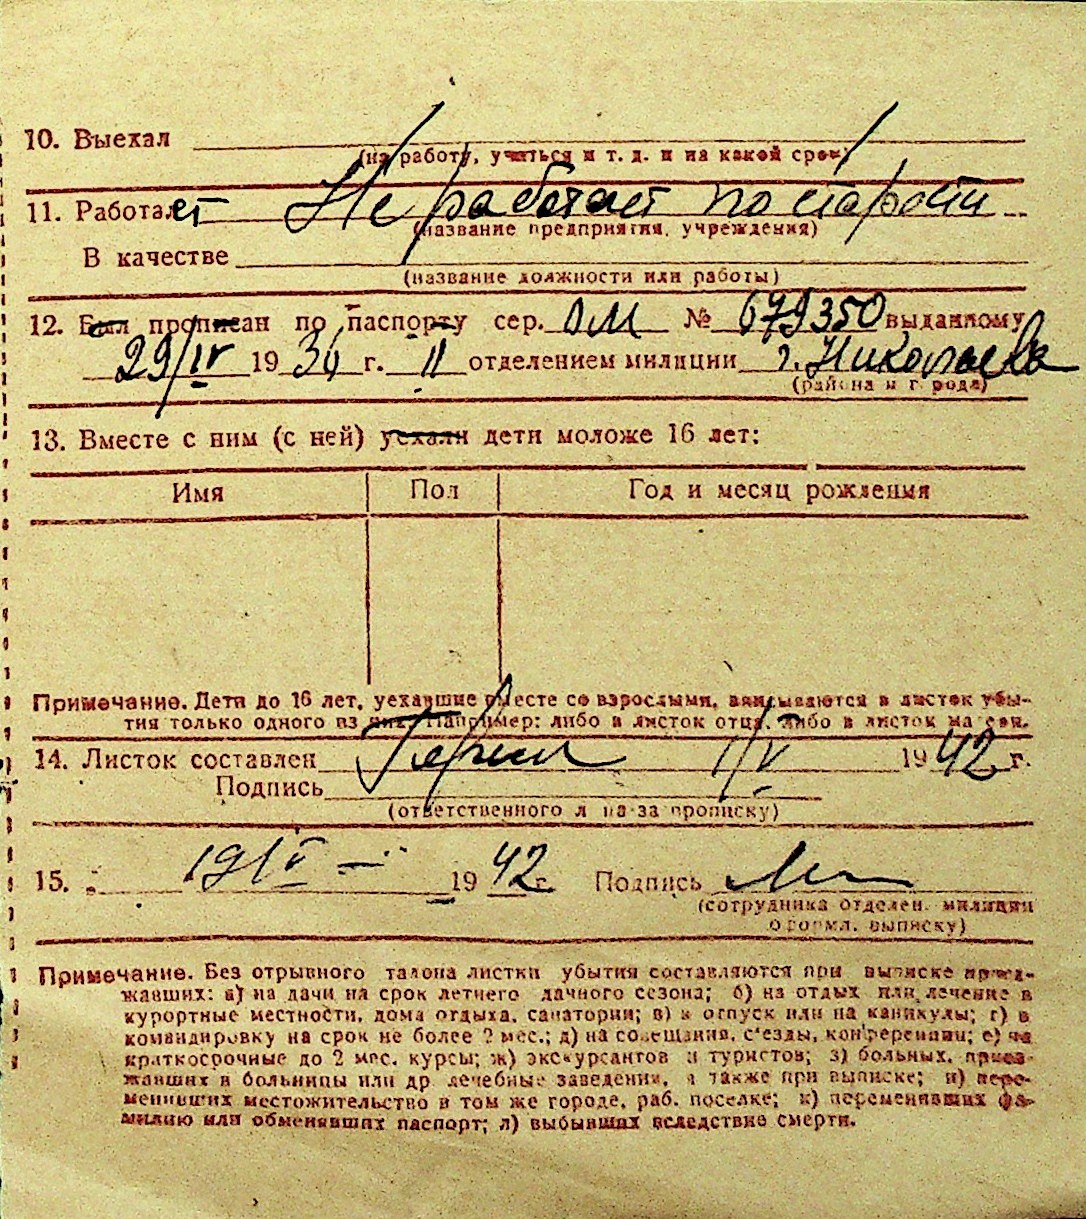 10. Выехал
(на работу, учиться и т. д. и на какой срок)
11. Работает Не работает по старости
(название предприятия, учреждения)
В качестве
(название должности или работы)
12. Был прописан по паспорту сер. ОМ № 679350 выданному
29/IV 1936 г. II отделением милиции г. Николаева
(района и города)
13. Вместе с ним (с ней) уехали дети моложе 16 лет:
Имя Пол Год и месяц рождения
Примечание. Дети до 16 лет, уехавшие вместе со взрослыми, вписываются в листок убы-
тия только одного из них. Например: либо в листок отца, либо в листок матери.
14. Листок составлен 1/V 1942 г.
Подпись
(ответственного л на за прописку)
15. 19/V 1942 г. Подпись
(сотрудника отделен. милиции
оформл. выписку)
Примечание. Без отрывного талона листки убытия составляются при выписке приез-
жавших: а) на дачи на срок летнего дачного сезона; б) на отдых или лечение в
курортные местности, дома отдыха, санатории; в) в отпуск или на каникулы; г) в
командировку на срок не более 2 мес.; д) на совещания, с'езды, конференции; е) на
краткосрочные до 2 мес. курсы; ж) экскурсантов и туристов; з) больных, приез-
жавших в больницы или др лечебные заведения, а также при выписке; и) пере-
менивших местожительство в том же городе, раб. поселке; к) переменивших фа-
милию или обменявших паспорт; л) выбывших вследствие смерти.